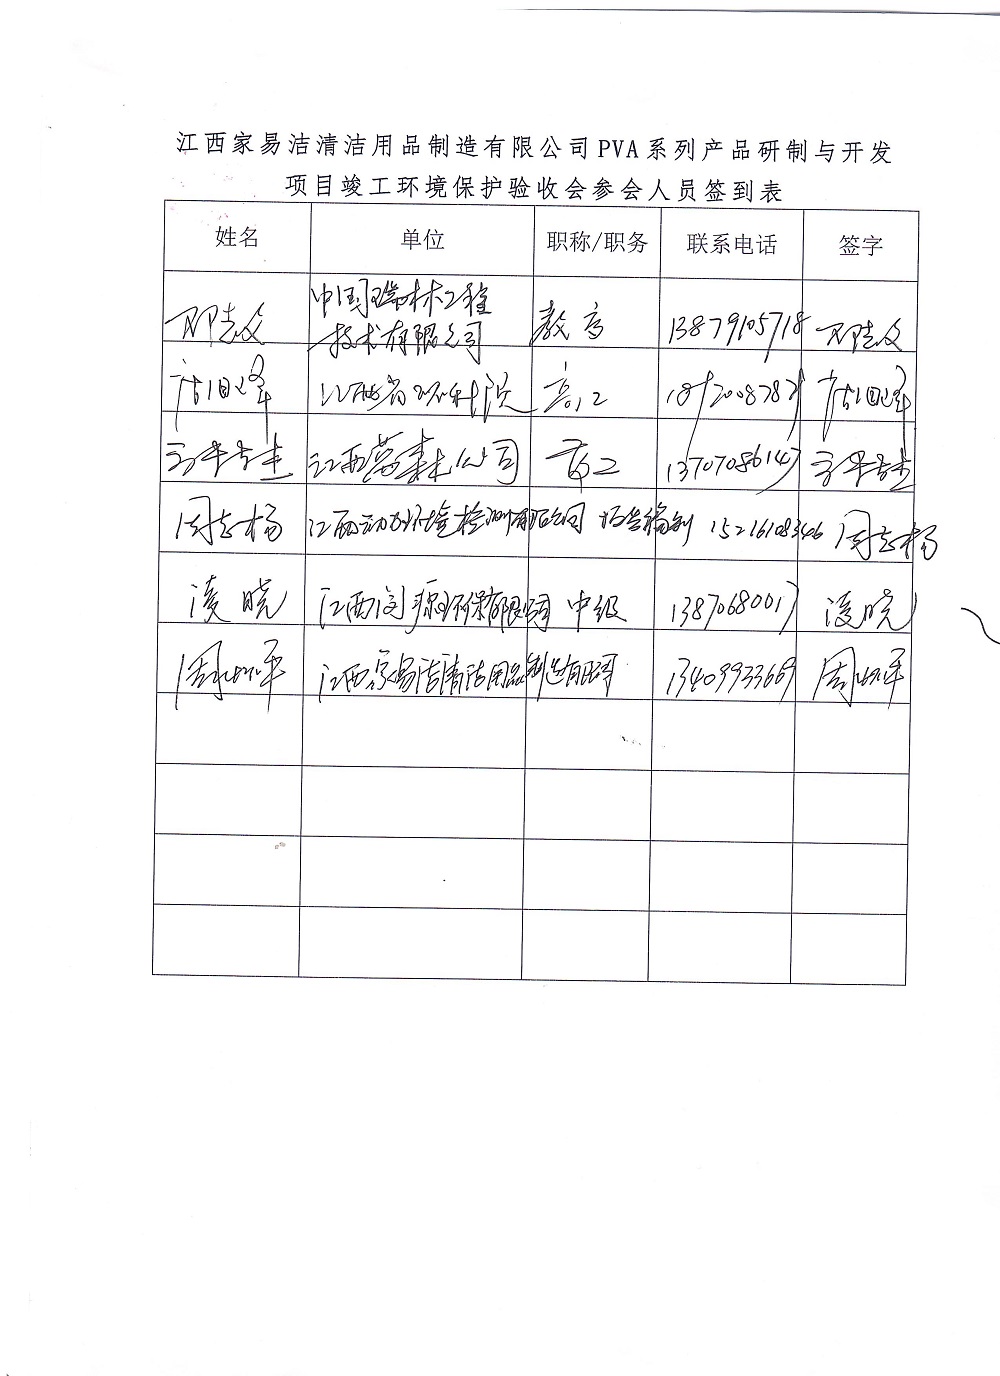 江西家易洁清洁用品制造有限公司PVA系列产品研制与开发
项目竣工环境保护验收会参会人员签到表
姓名 单位 职称/职务 联系电话 签字
邓志文 中国瑞林工程 教高 13879105718 邓志文
技术有限公司
江西省环科院 高工
江西 公司 高工 13707086147
周志杨 江西动力环境检测有限公司 报告编制 15216108346 周志杨
凌晓 江西 环保有限公司 中级 13870680017 凌晓
周 平 江西家易洁清洁用品制造有限公司 13409933669 周 平